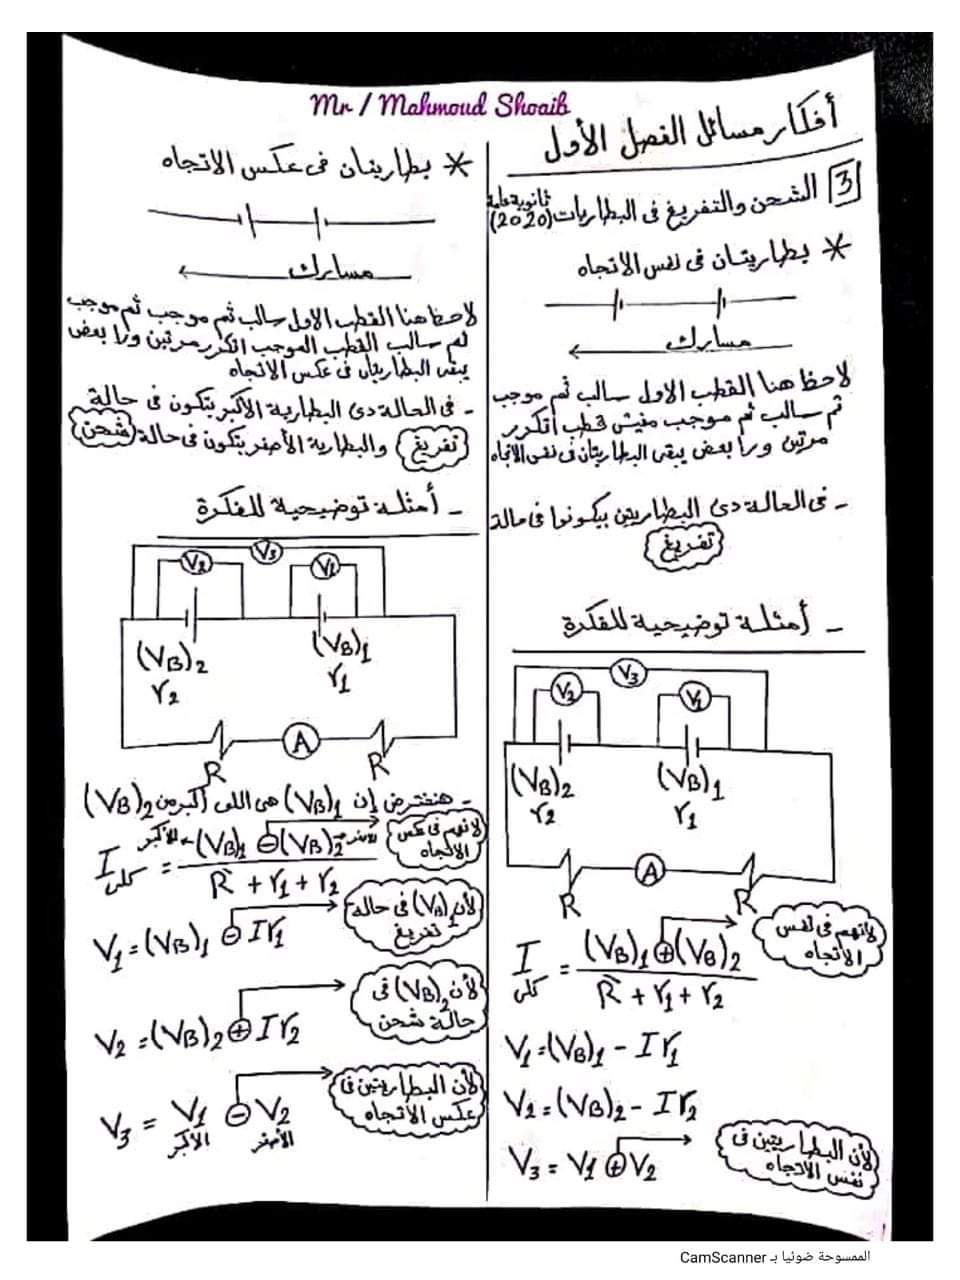 Mr / Mahmoud Shoaib
أفكار مسائل الفصل الأول
3 الشحن والتفريغ فى البطاريات (ثانوية عامة 2020)
* بطاريتان فى نفس الاتجاه
مسارك
لاحظ هنا القطب الاول سالب ثم موجب
ثم سالب ثم موجب مفيش قطب اتكرر
مرتين ورا بعض يبقى البطاريتان فى نفس الاتجاه
- فى الحالة دى البطاريتين بيكونوا فى حالة
تفريغ
- أمثلة توضيحية للفكرة
V3
V2 V1
(VB)2 (VB)1
r2 r1
A
R R
I كلى = (VB)1 ⊕ (VB)2 / R̀ + r1 + r2
لانهم فى نفس
الاتجاه
V1 = (VB)1 - I r1
V2 = (VB)2 - I r2
V3 = V1 ⊕ V2
لأن البطاريتين فى
نفس الاتجاه
* بطاريتان فى عكس الاتجاه
مسارك
لاحظ هنا القطب الاول سالب ثم موجب ثم موجب
ثم سالب القطب الموجب اتكرر مرتين ورا بعض
يبقى البطاريتان فى عكس الاتجاه
- فى الحالة دى البطارية الأكبر بتكون فى حالة
تفريغ والبطارية الأصغر بتكون فى حالة شحن
- أمثلة توضيحية للفكرة
V3
V2 V1
(VB)2 (VB)1
r2 r1
A
R R
- هنفترض إن (VB)1 هى اللى أكبر من (VB)2
I كلى = الأكبر (VB)1 ⊖ (VB)2 الأصغر / R̀ + r1 + r2
لانهم فى عكس
الاتجاه
V1 = (VB)1 ⊖ I r1
لأن (VB)1 فى حالة
تفريغ
V2 = (VB)2 ⊕ I r2
لأن (VB)2 فى
حالة شحن
V3 = V1 ⊖ V2
الأكبر الأصغر
لأن البطاريتين فى
عكس الاتجاه
الممسوحة ضوئيا بـ CamScanner